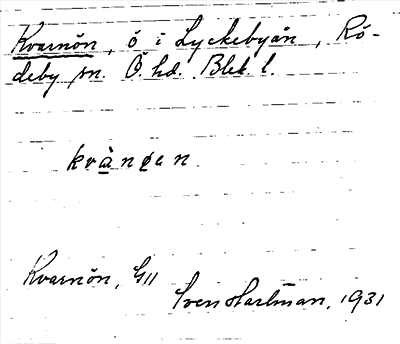 Kvarnön, ö i Lyckebyån, Rö-
deby sn. Ö. hd. Blek. l.
kvànɛen.
Kvarnön, G11
Sven Hartman, 1931